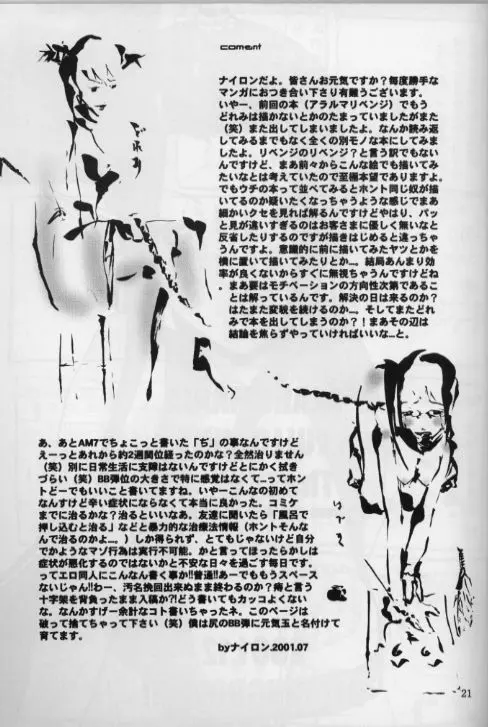 coment
ナイロンだよ。皆さんお元気ですか？毎度勝手な
マンガにおつき合い下さり有難うございます。
いやー、前回の本（アラルマリベンジ）でもう
どれみは描かないとかのたまっていましたがまた
（笑）また出してしまいましたよ。なんか読み返
してみるまでもなく全くの別モノな本にしてみま
したよ。リベンジのリベンジ？と言う訳でもない
んですけど、まあ前々からこんな絵でも描いてみ
たいなとは考えていたので至極本望でありますよ。
でもウチの本って並べてみるとホント同じ奴が描
いてるのか疑いたくなっちゃうような感じでまあ
細かいクセを見れば解るんですけどやはり、パッ
と見が違いすぎるのはお客さまに優しく無いなと
反省したりするのですが描きはじめると違っちゃ
うんですよ。意識的に前に描いてみたヤツとかを
横に置いて描いてみたりとか…。結局あんまり効
率が良くないからすぐに無視ちゃうんですけどね
。まあ要はモチベーションの方向性次第であるこ
とは解っているんです。解決の日は来るのか？
はたまた変貌を続けるのか…。そしてまたどれ
みで本を出してしまうのか？！まあその辺は
結論を焦らずやっていければいいな…と。
どれみ
はづき
あ、あとAM7でちょこっと書いた「ぢ」の事なんですけど
えーっとあれから約2週間位経ったのかな？全然治りません
（笑）別に日常生活に支障はないんですけどとにかく拭き
づらい（笑）BB弾位の大きさで特に感覚はなくて…ってホン
トどーでもいいこと書いてますね。いやーこんなの初めて
なんすけど辛い症状にならなくて本当に良かった。コミケ
までに治るかな？治るといいなあ。友達に聞いたら「風呂で
押し込むと治る」などと暴力的な治療法情報（ホントそんな
んで治るのかよ…。）しか得られず、とてもじゃないけど自分
でかようなマゾ行為は実行不可能。かと言ってほったらかしは
症状が悪化するのではないかと不安な日々を過ごす毎日です。
ってエロ同人にこんなん書く事か!!普通!!あーでももうスペース
ないじゃん!!わー、汚名挽回出来ぬまま終わるのか？痔と言う
十字架を背負ったまま入稿か?!どう書いてもカッコよくない
な。なんかすげー余計なコト書いちゃったネ。このページは
破って捨てちゃって下さい（笑）僕は尻のBB弾に元気玉と名付けて
育てます。
byナイロン.2001.07
21